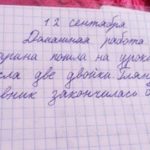 12 сентября
Домашная работа
арина пошла на урок
сла две двойки. Глян
вник закончилась